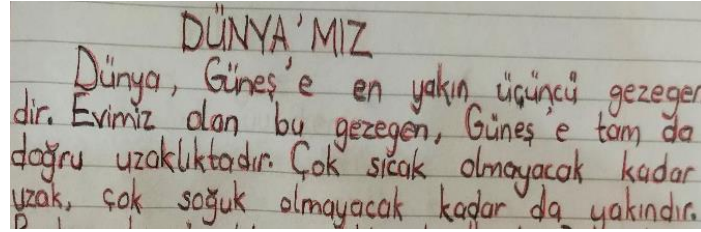 DÜNYA'MIZ
Dünya, Güneş'e en yakın üçüncü gezegen
dir. Evimiz olan bu gezegen, Güneş'e tam da
doğru uzaklıktadır. Çok sıcak olmayacak kadar
uzak, çok soğuk olmayacak kadar da yakındır.